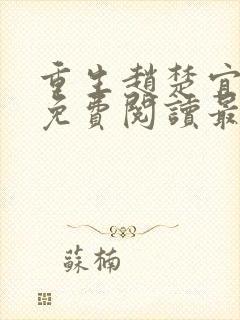 重生趙楚宜
免費閱讀最
蘇楠